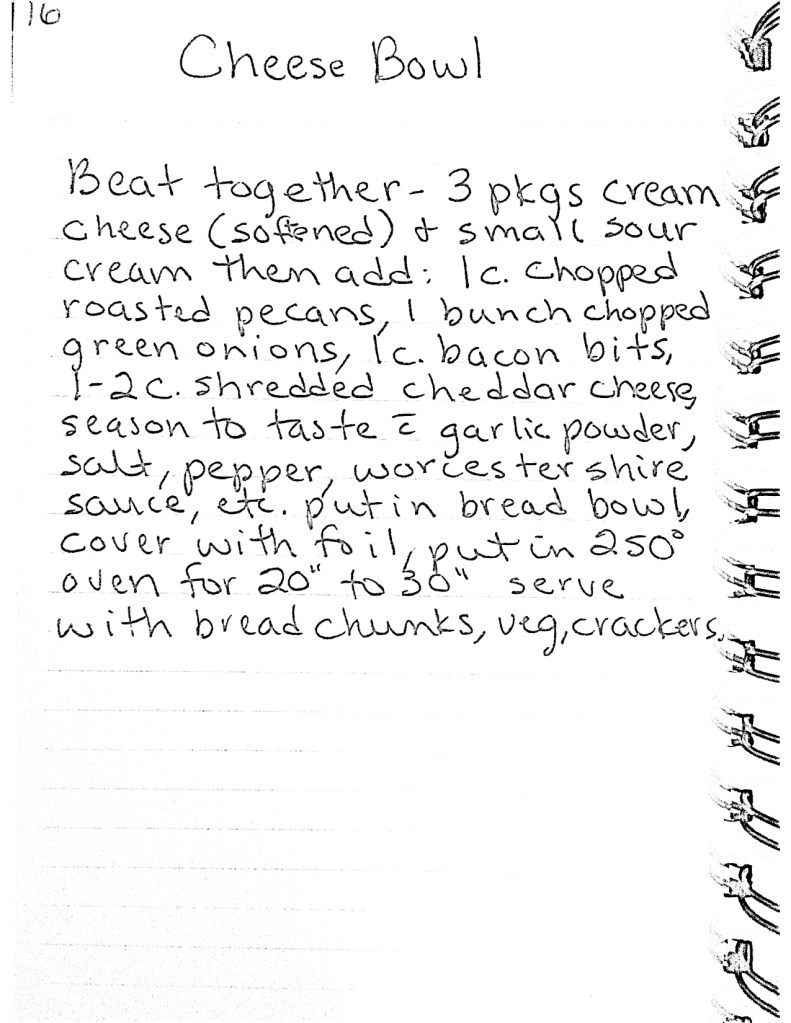 116
Cheese Bowl
Beat together - 3 pkgs cream
cheese (softened) & small sour
cream then add: 1c. chopped
roasted pecans, 1 bunch chopped
green onions, 1c. bacon bits,
1-2c. shredded cheddar cheese,
season to taste c̄ garlic powder,
salt, pepper, worcestershire
sauce, etc. put in bread bowl,
cover with foil, put in 250°
oven for 20" to 30" serve
with bread chunks, veg, crackers.